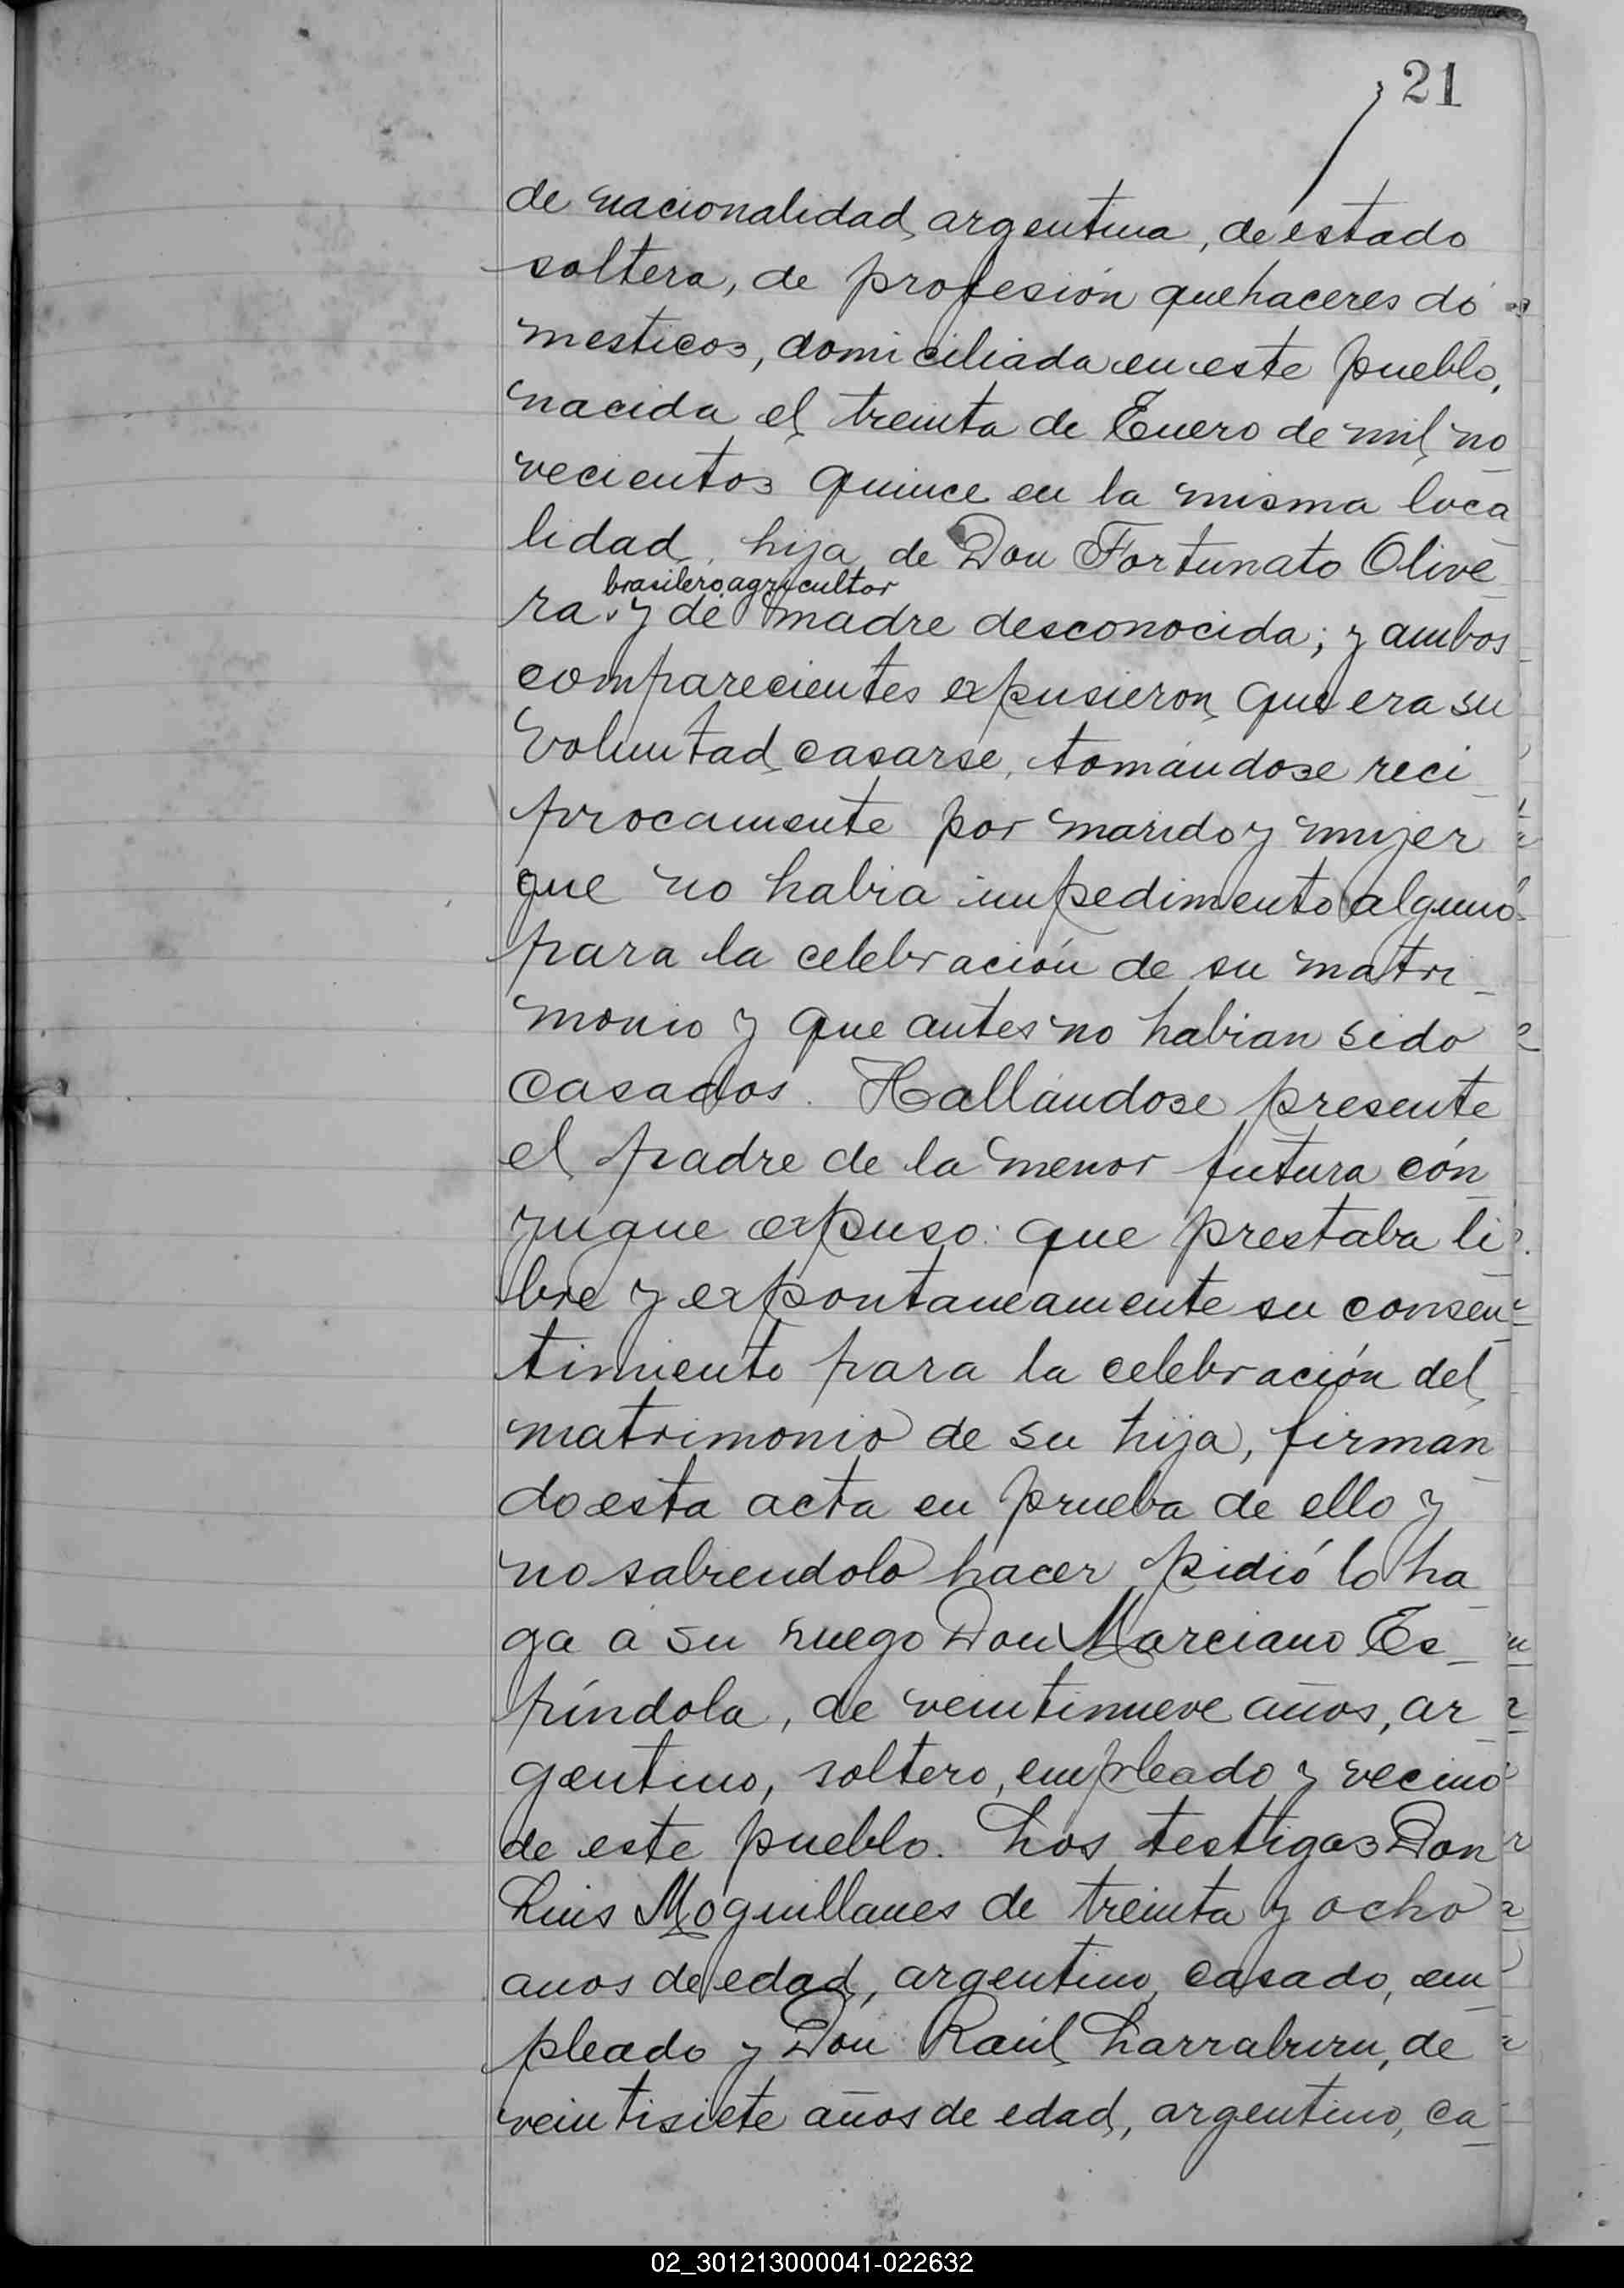 21
de nacionalidad argentina, de estado
soltera, de profesión quehaceres do
mesticos, domiciliada en este pueblo,
nacida el treinta de Enero de mil no
vecientos quince en la misma loca
lidad, hija de Don Fortunato Olive
brasilero agricultor
ra y de madre desconocida; y ambos
comparecientes expusieron que era su
voluntad casarse, tomándose reci
procamente por marido y mujer
que no habia impedimento alguno
para la celebración de su matri
monio y que antes no habian sido
casados. Hallándose presente
el padre de la menor futura cón
yugue expuso: que prestaba li
bre y expontaneamente su consen
timiento para la celebración del
matrimonio de su hija, firman
do esta acta en prueba de ello y
no sabiendolo hacer pidió lo ha
ga a su ruego Don Marciano Es
píndola, de veintinueve años, ar
gentino, soltero, empleado y vecino
de este pueblo. Los testigos Don
Luis Moguillanes de treinta y ocho
anos de edad, argentino, casado, em
pleado y Don Raúl Larraburu, de
veintisiete años de edad, argentino, ca
02_301213000041-022632